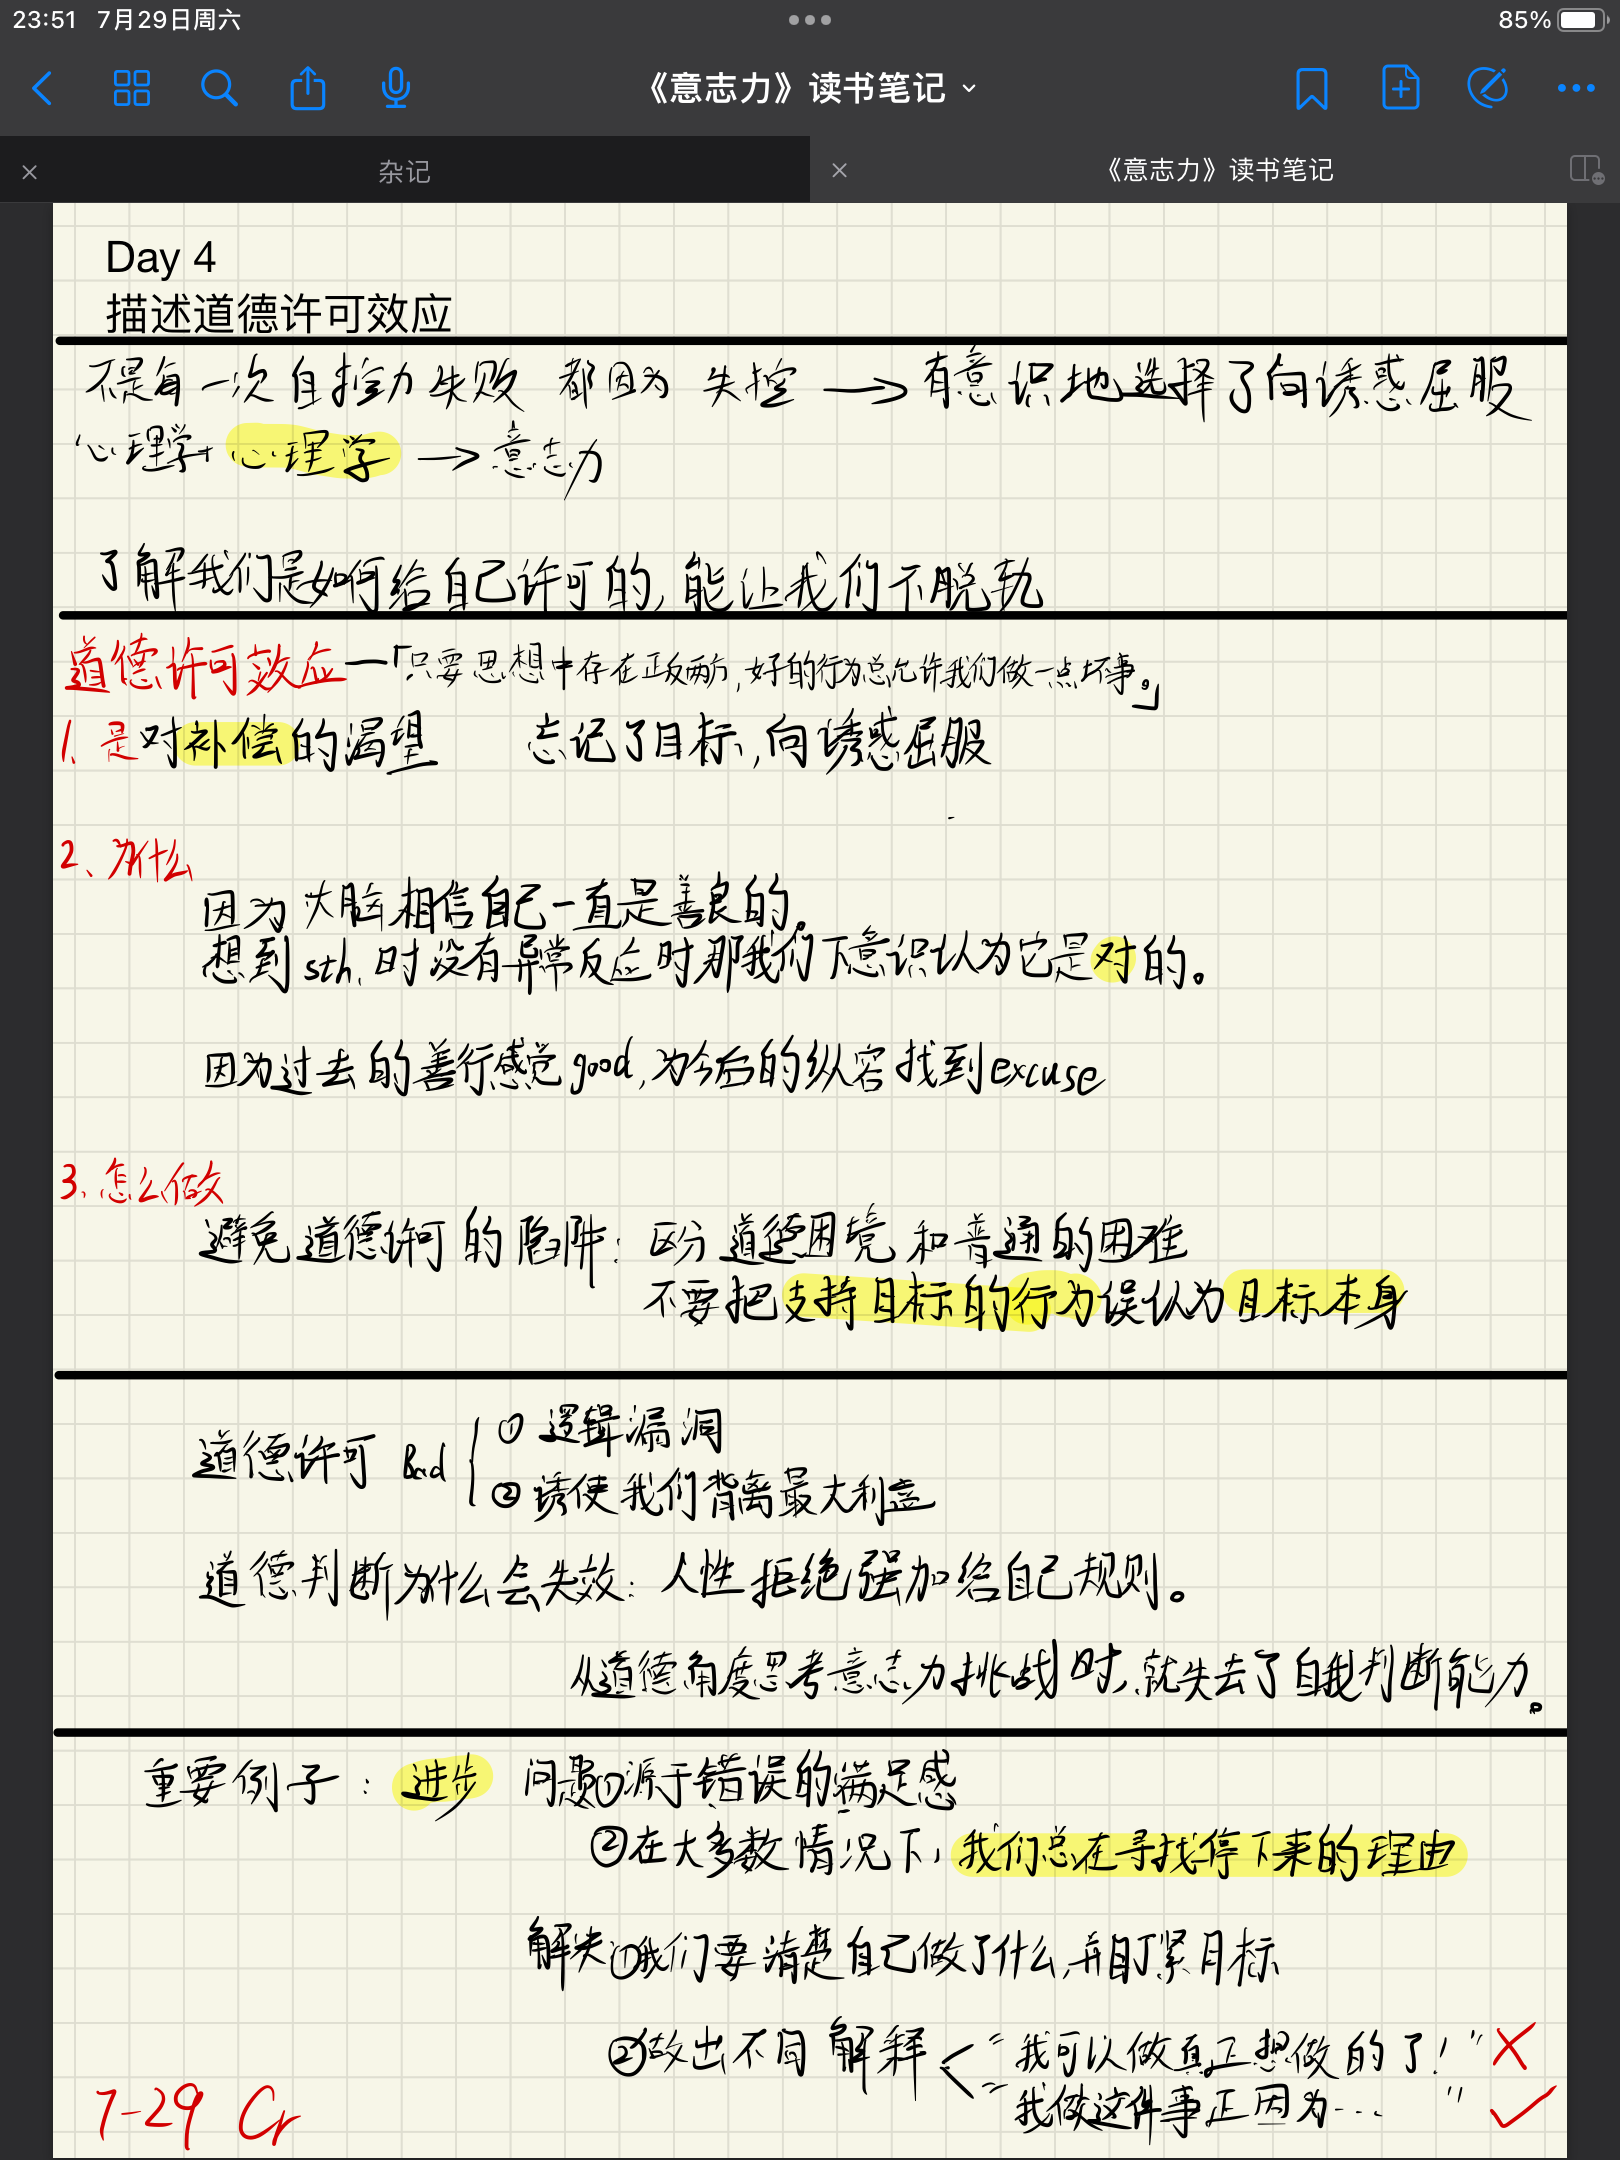 23:51 7月29日周六
85%
《意志力》读书笔记
杂记
《意志力》读书笔记
Day 4
描述道德许可效应
不是每一次自控力失败 都因为 失控 → 有意识地选择了向诱惑屈服
心理学+心理学 → 意志力
了解我们是如何给自己许可的,能让我们不脱轨
道德许可效应—「只要思想中存在正反两方,好的行为总允许我们做一点坏事。」
1、是对补偿的渴望 忘记了目标,向诱惑屈服
2、为什么
因为大脑相信自己一直是善良的。
想到 sth. 时没有异常反应时那我们下意识认为它是对的。
因为过去的善行感觉good,为今后的纵容找到excuse
3、怎么做
避免道德许可的陷阱: 区分道德困境和普通的困难
不要把支持目标的行为误认为目标本身
道德许可 Bad { ① 逻辑漏洞
② 诱使我们背离最大利益
道德判断为什么会失效: 人性拒绝强加给自己规则。
从道德角度思考意志力挑战时,就失去了自我判断能力。
重要例子: 进步 问题①源于错误的满足感
②在大多数情况下,我们总在寻找停下来的理由
解决①我们要清楚自己做了什么,并盯紧目标
②做出不同解释 < “我可以做真正想做的了!” ✗
“我做这件事正因为…” ✓
7-29 Cr